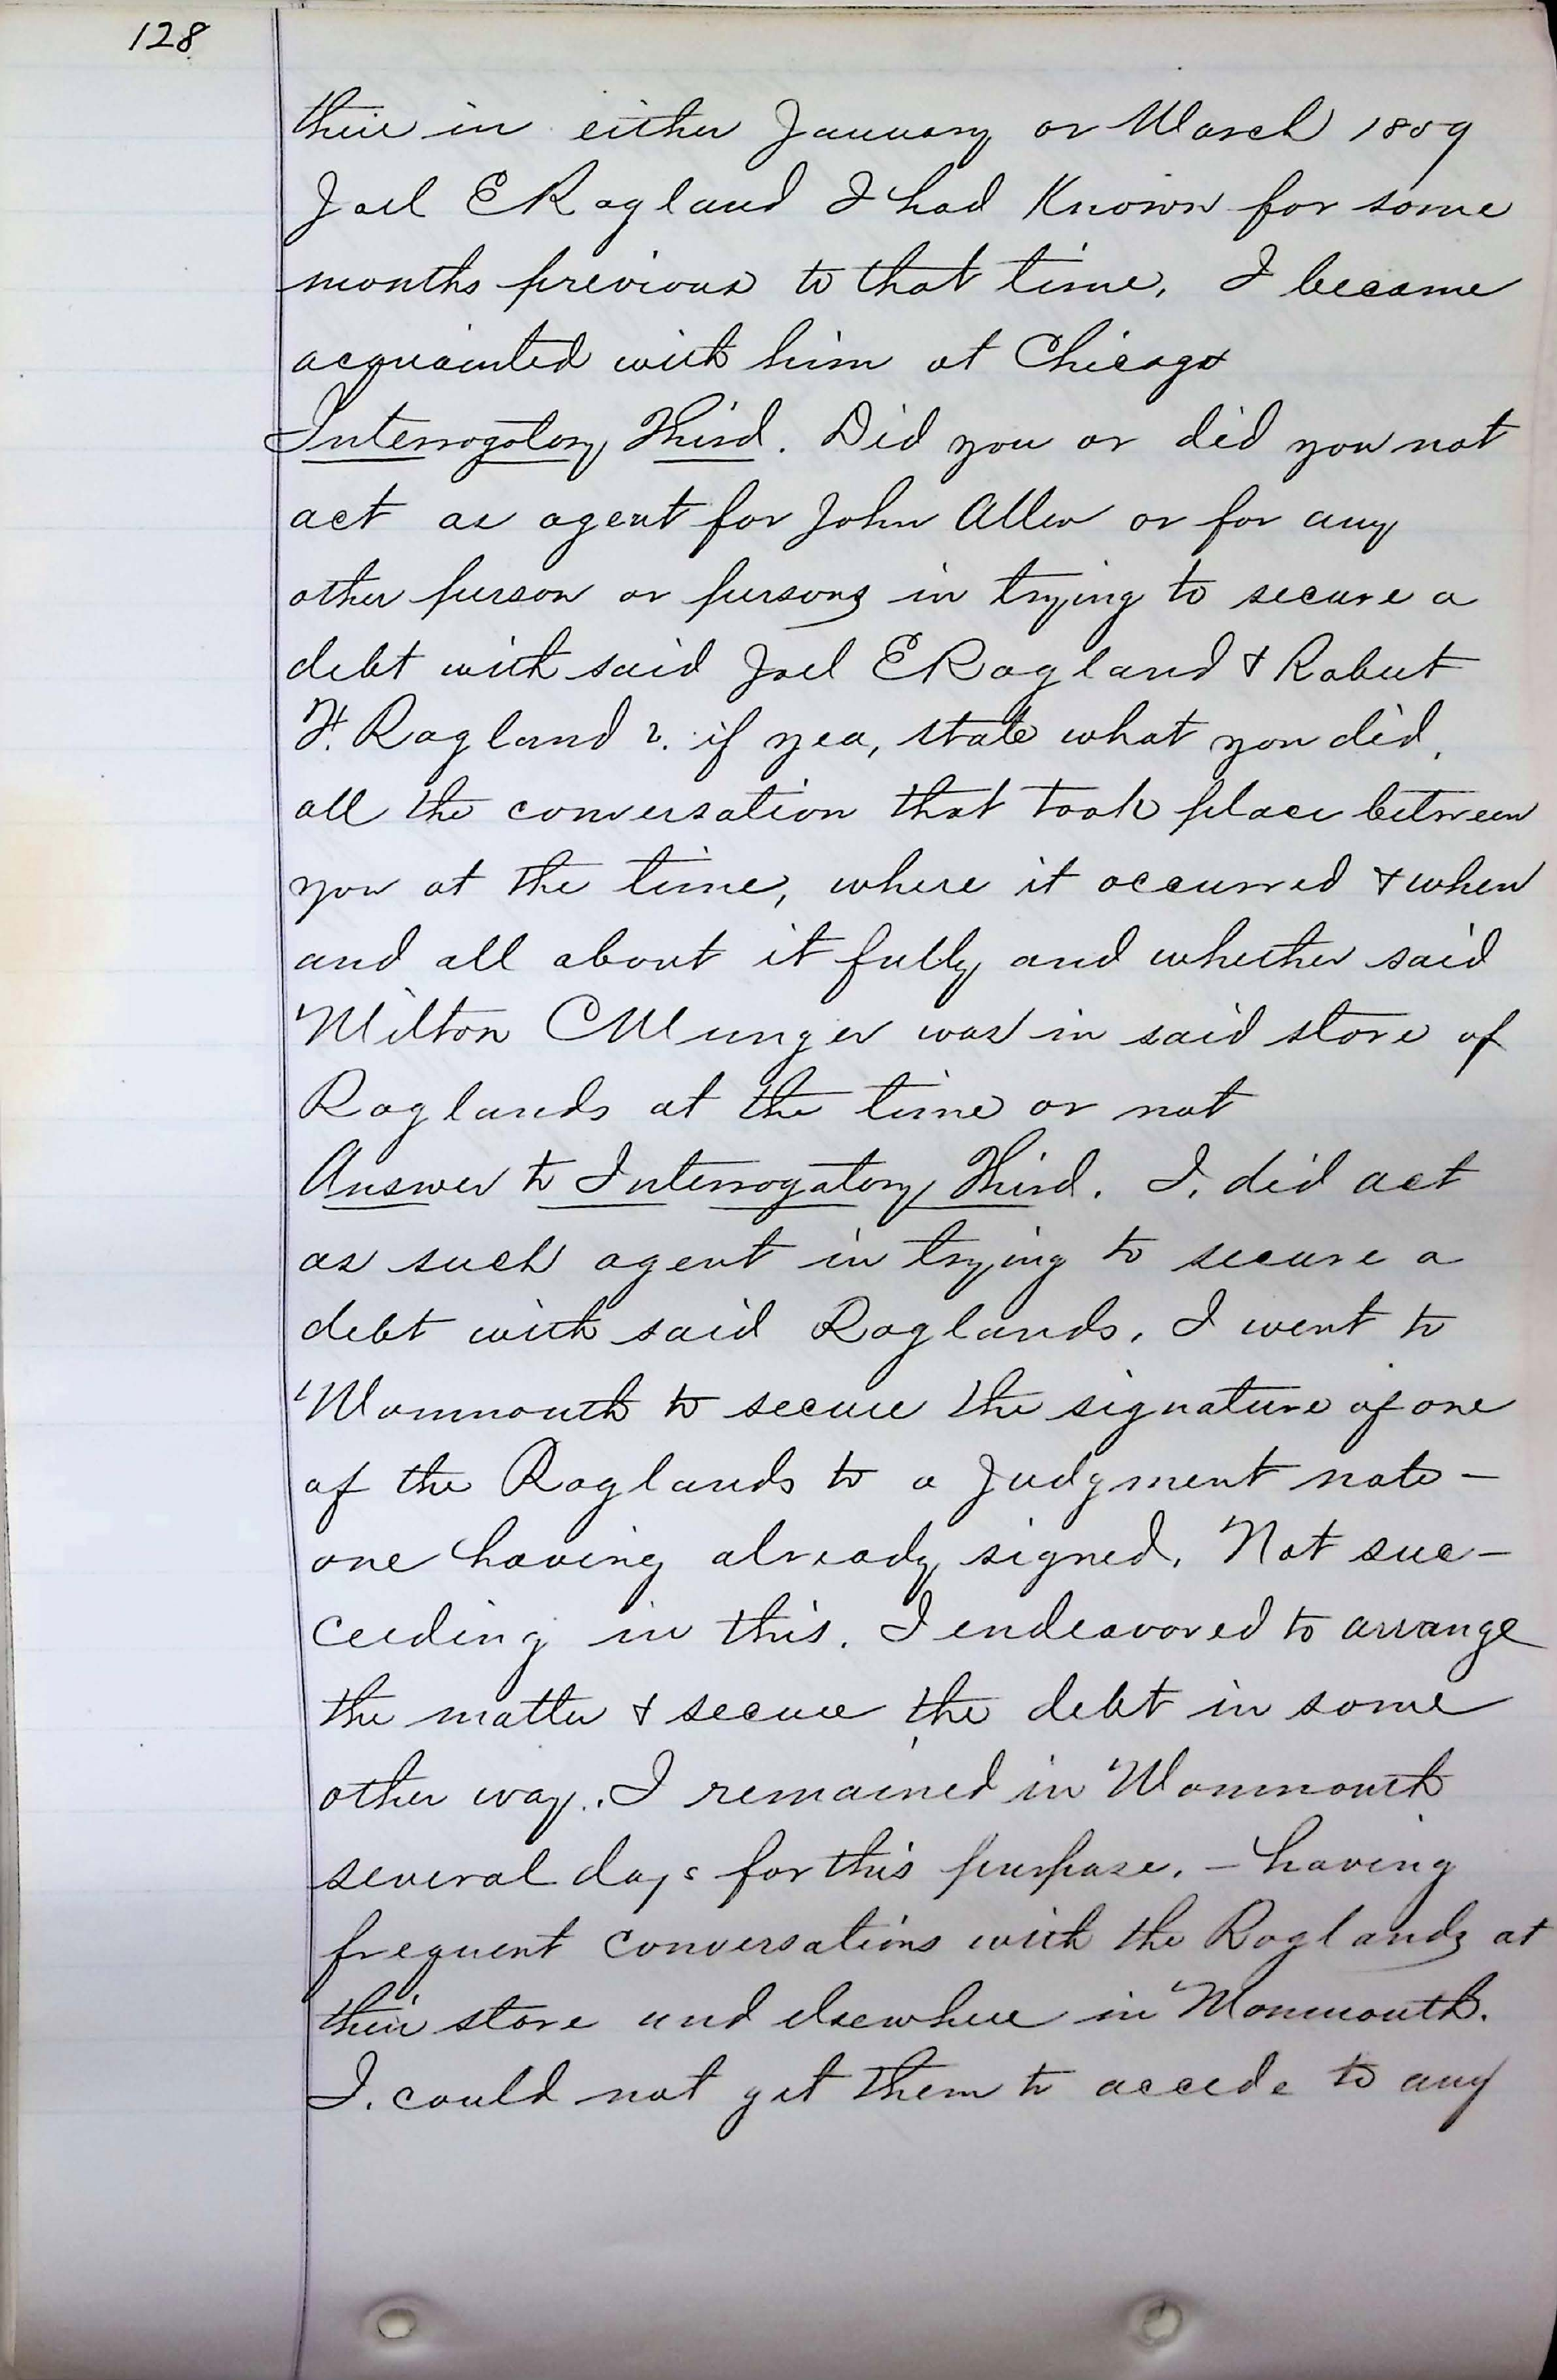 128
their in either January or March 1859
Joel E Ragland I had Known for some
months previous to that time, I became
acquainted with him at Chicago
Interrogatory Third. Did you or did you not
act as agent for John Allen or for any
other person or persons in trying to secure a
debt with said Joel E Ragland & Robert
F. Ragland ?. if yea, state what you did,
all the conversation that took place between
you at the time, where it occurred & when
and all about it fully and whether said
Milton C Munger was in said store of
Raglands at the time or not
Answer to Interrogatory Third. I. did act
as such agent in trying to secure a
debt with said Raglands, I went to
Monmouth to secure the signature of one
of the Raglands to a Judgment note –
one having already signed, Not suc–
ceeding in this. I endeavored to arrange
the matter & secure the debt in some
other way. I remained in Monmouth
several days for this purpose, – having
frequent conversations with the Raglands at
their store and elsewhere in Monmouth.
I. could not get them to accede to any